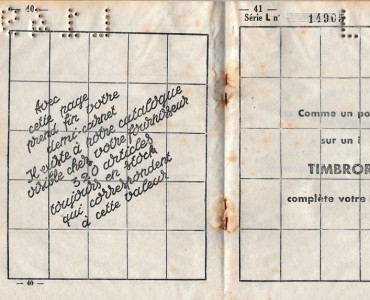 — 40 —
Avec
cette page
prend fin votre
demi-carnet
Il existe à notre catalogue
visible chez votre fournisseur
320 articles
toujours en stock
qui correspondent
à cette valeur
— 40 —
— 41 —
Série L n° 14905
Comme un po
sur un i
TIMBROR
complète votre